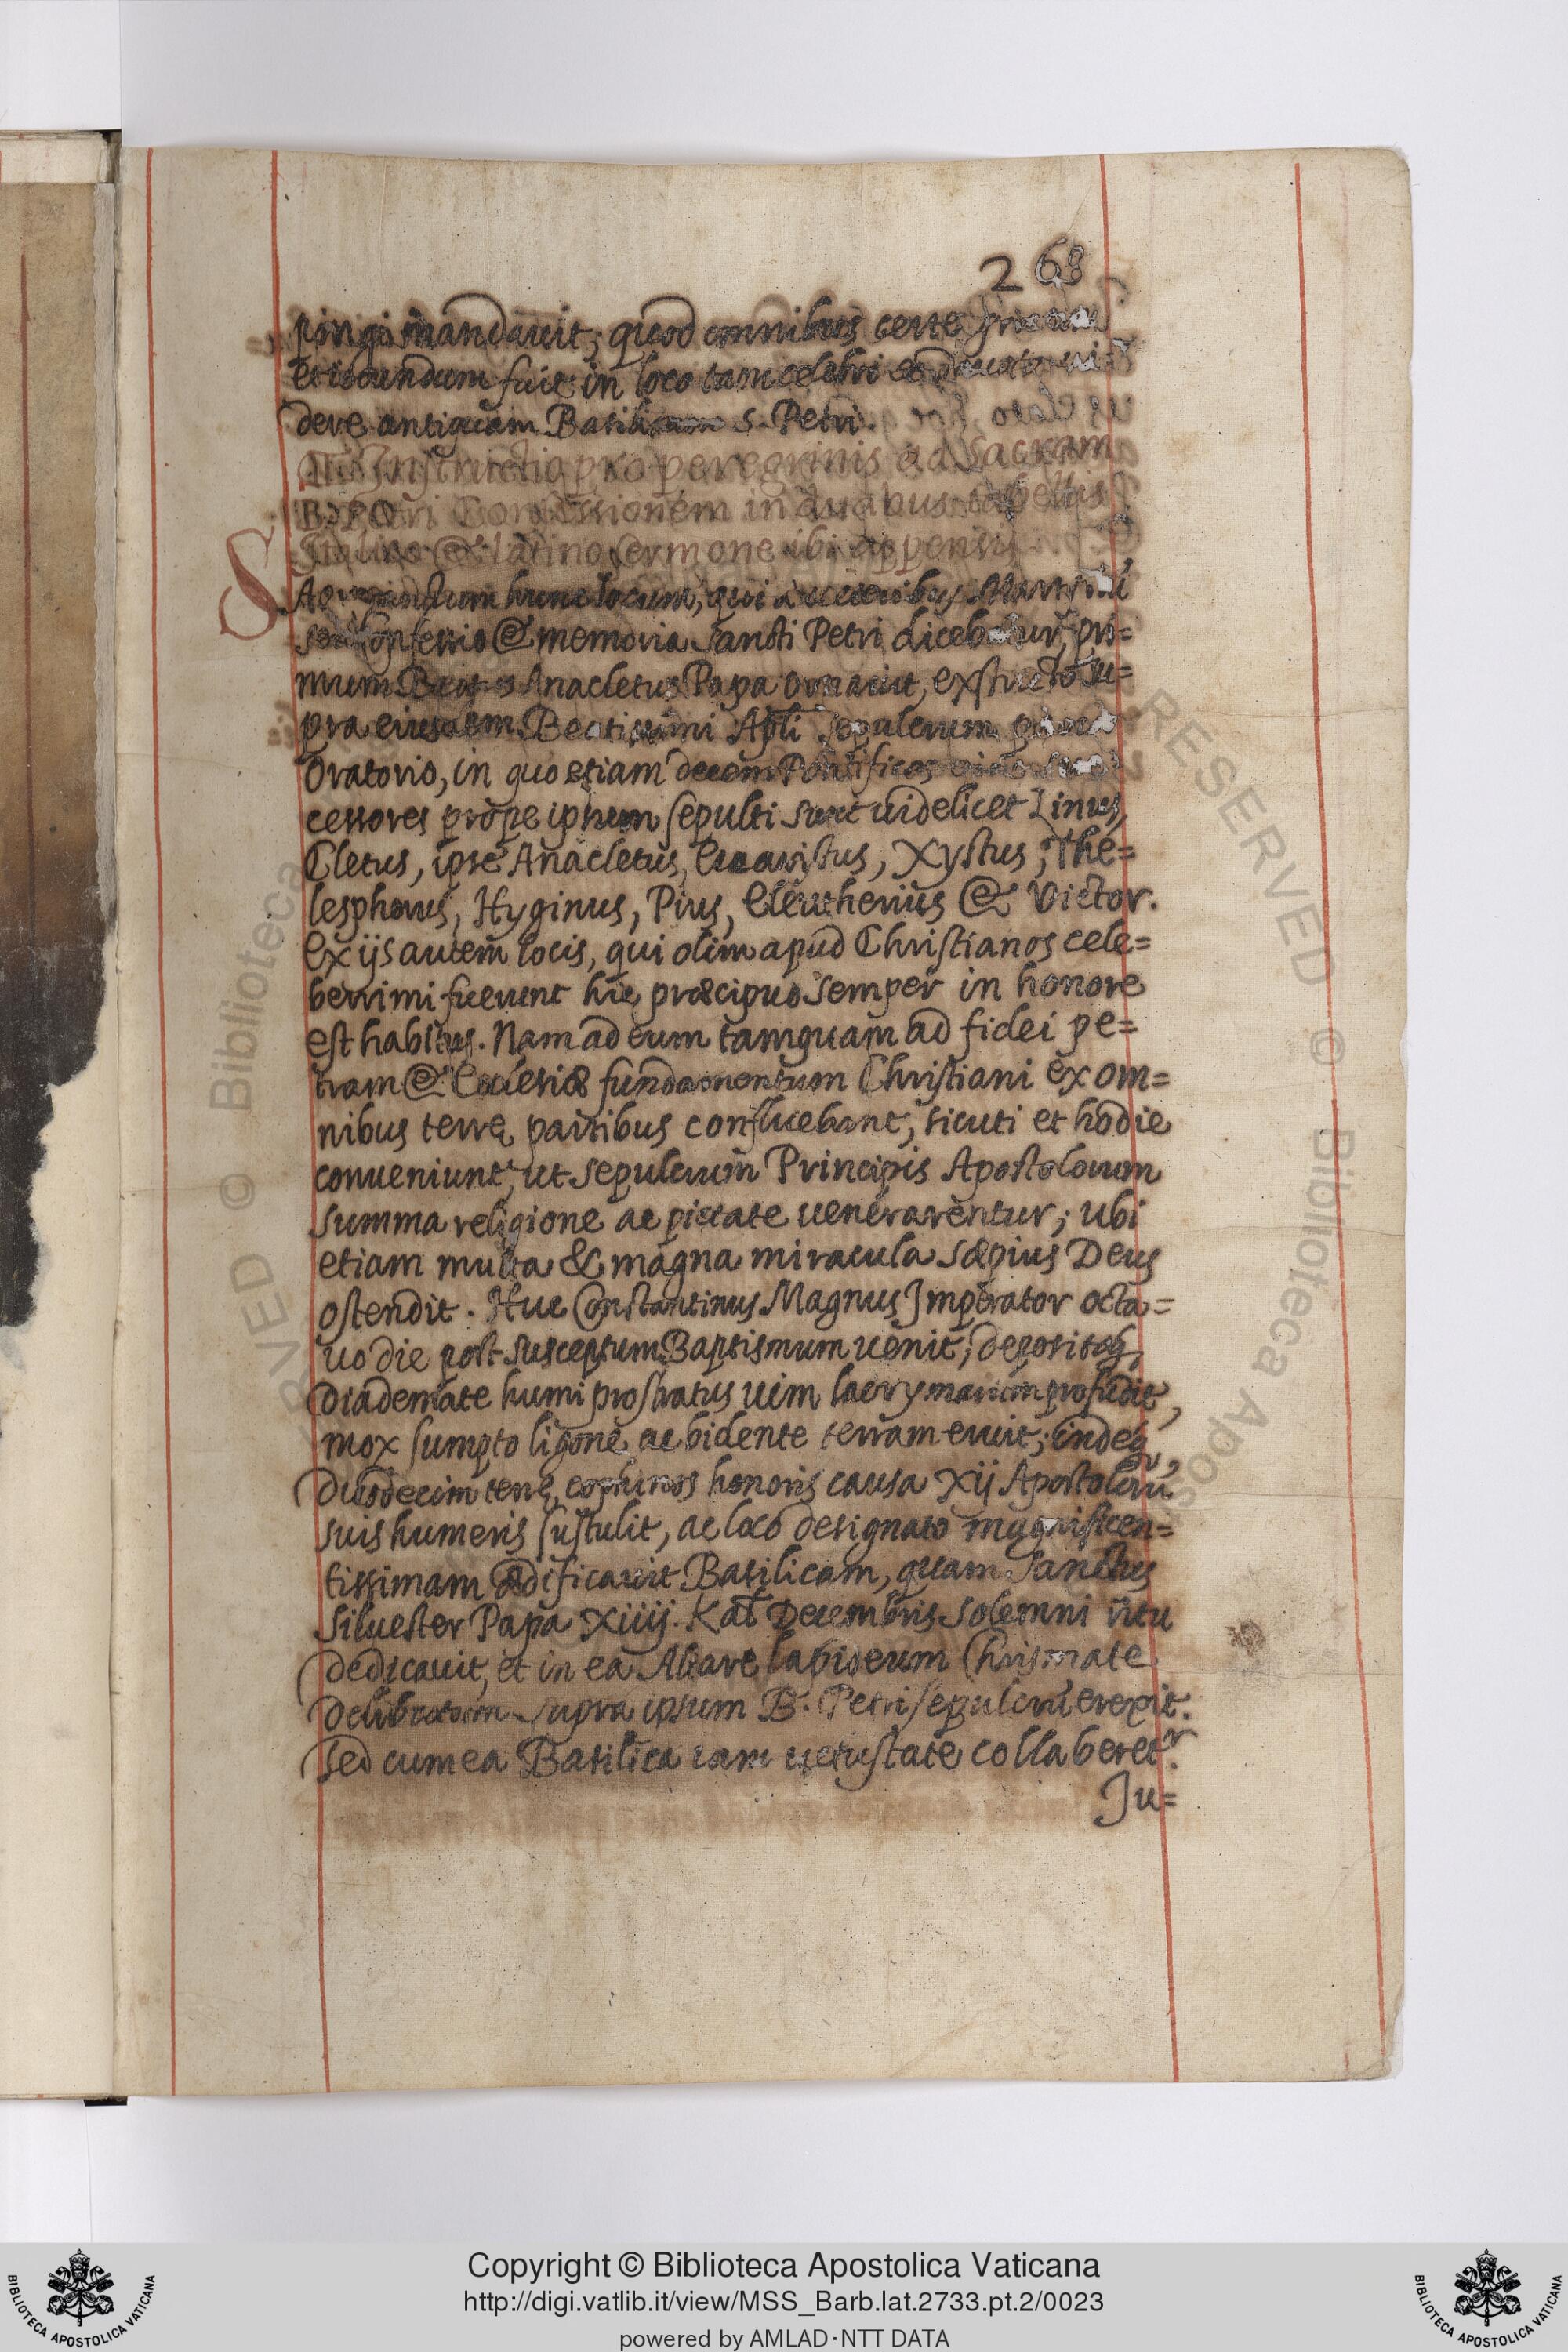 268
pingi mandauit; quod omnibus certe
et iocundum fuit in loco tam celebri
dere antiquam Basilicam S. Petri.
Instructio pro peregrinis ad Sacram
B. Petri Confessionem in duabus tabellis
Italico & latino sermone ibi appensis
Sacrosanctum hunc locum, qui a ueteribus Martirii
seu Confessio & memoria Sancti Petri dicebatur, pri=
mum Beatus Anacletus Papa ornauit, exstructo su=
pra eiusdem Beatissimi Apli sepulcrum
Oratorio, in quo etiam decem Pontifices
cessores prope ipsum sepulti sunt uidelicet Linus,
Cletus, ipse Anacletus, Euaristus, Xystus, The=
lesphorus, Hyginus, Pius, Eleutherius & Victor.
Ex ijs autem locis, qui olim apud Christianos cele=
berrimi fuerunt hic præcipuo semper in honore
est habitus. Nam ad eum tamquam ad fidei pe=
tram & Ecclesiæ fundamentum Christiani ex om=
nibus terrę partibus confluebant, sicuti et hodie
conueniunt, ut sepulcrum Principis Apostolorum
summa religione ac pietate uenerarentur; ubi
etiam multa & magna miracula sæpius Deus
ostendit. Huc Constantinus Magnus Imperator octa=
uo die post susceptum Baptismum uenit, depositoq,
diademate humi prostratus uim lacrymarum profudit,
mox sumpto ligone ac bidente terram eruit; indeq,
duodecim terrę cophinos honoris causa XII Apostolorũ
suis humeris sustulit, ac loco designato magnificen=
tissimam ædificauit Basilicam, quam Sanctus
Siluester Papa XIIIJ. Kal Decembris solemni ritu
dedicauit, et in ea Altare lapideum Chrismate
delibutum supra ipsum B. Petri sepulcrũ erexit.
Sed cum ea Basilica iam uetustate collaberetr.
Ju=
Copyright © Biblioteca Apostolica Vaticana
http://digi.vatlib.it/view/MSS_Barb.lat.2733.pt.2/0023
powered by AMLAD·NTT DATA
BIBLIOTECA APOSTOLICA VATICANA
BIBLIOTECA APOSTOLICA VATICANA